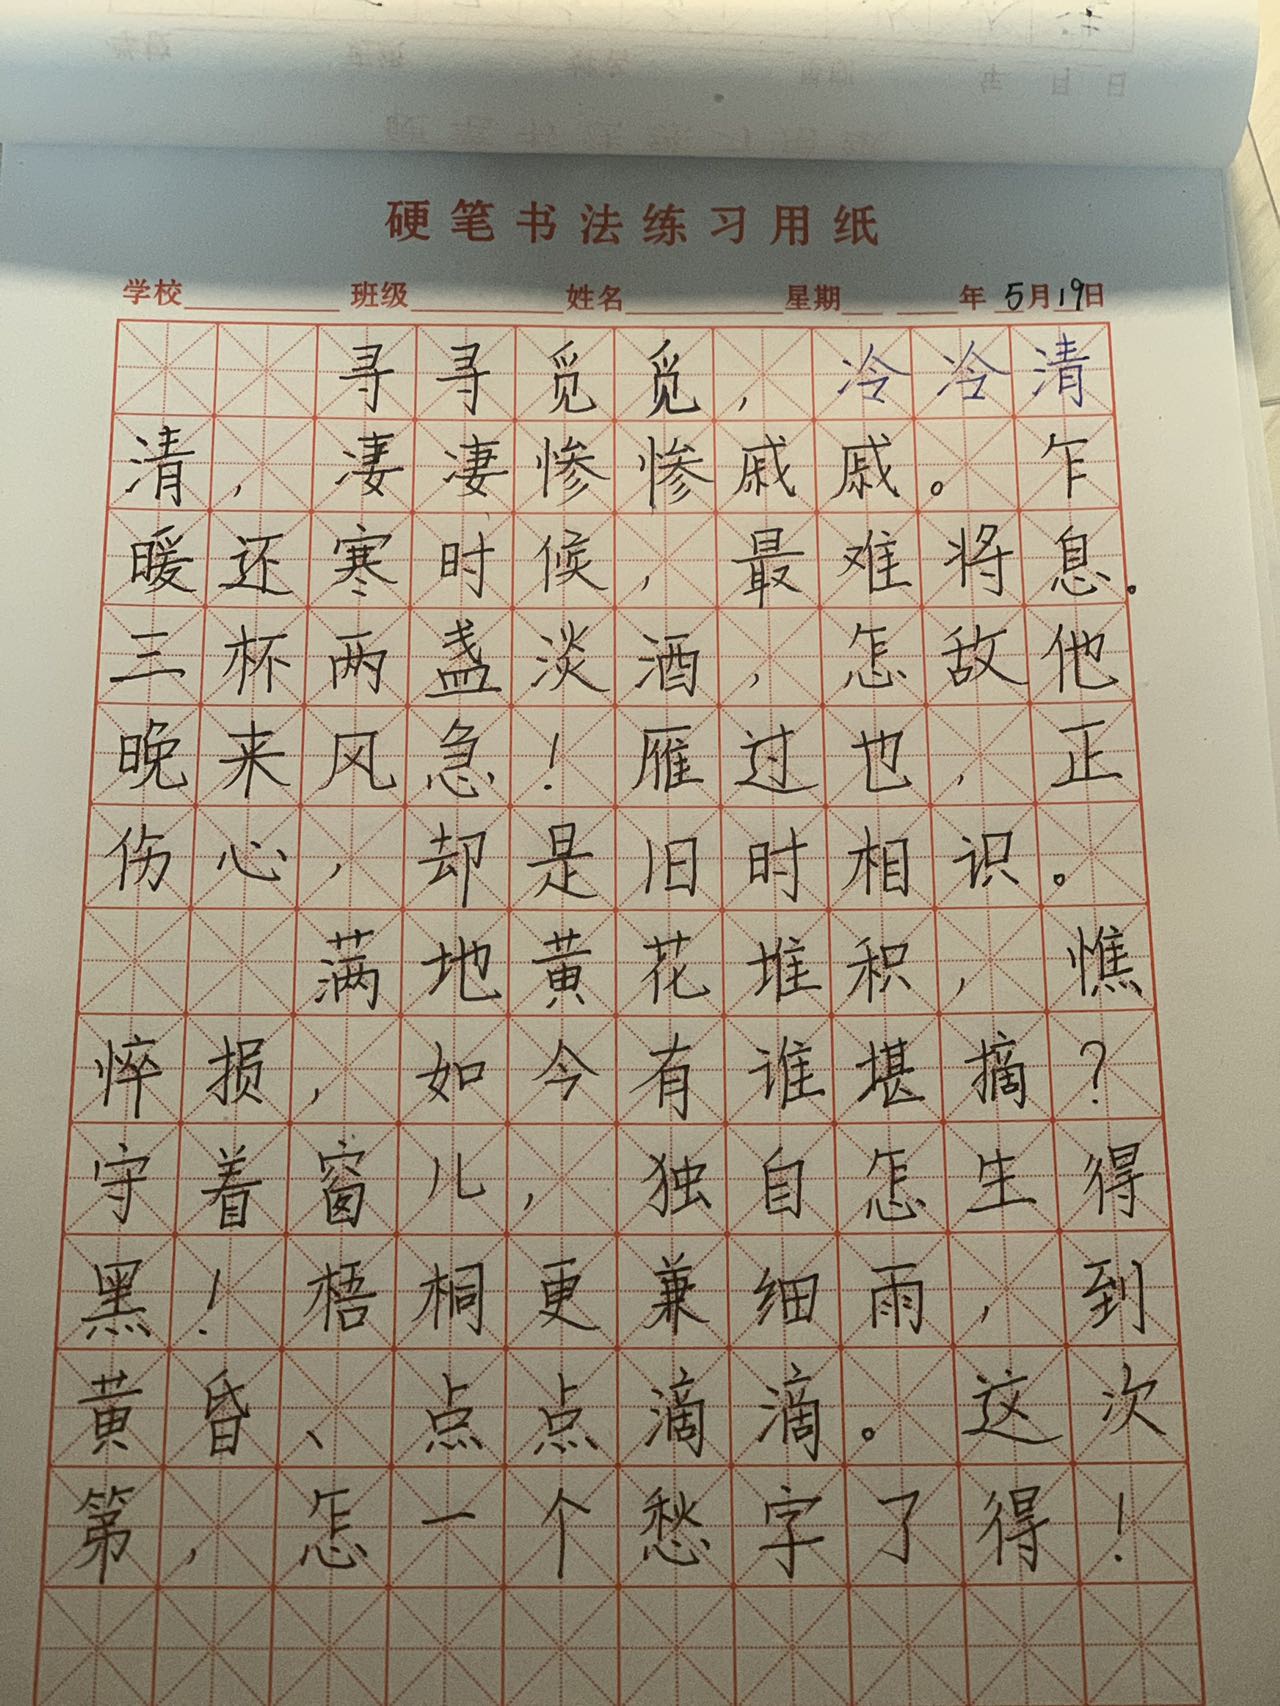 硬笔书法练习用纸
学校 班级 姓名 星期 年 5月19日
寻寻觅觅，冷冷清
清，凄凄惨惨戚戚。乍
暖还寒时候，最难将息。
三杯两盏淡酒，怎敌他
晚来风急！雁过也，正
伤心，却是旧时相识。
满地黄花堆积，憔
悴损，如今有谁堪摘？
守着窗儿，独自怎生得
黑！梧桐更兼细雨，到
黄昏、点点滴滴。这次
第，怎一个愁字了得！